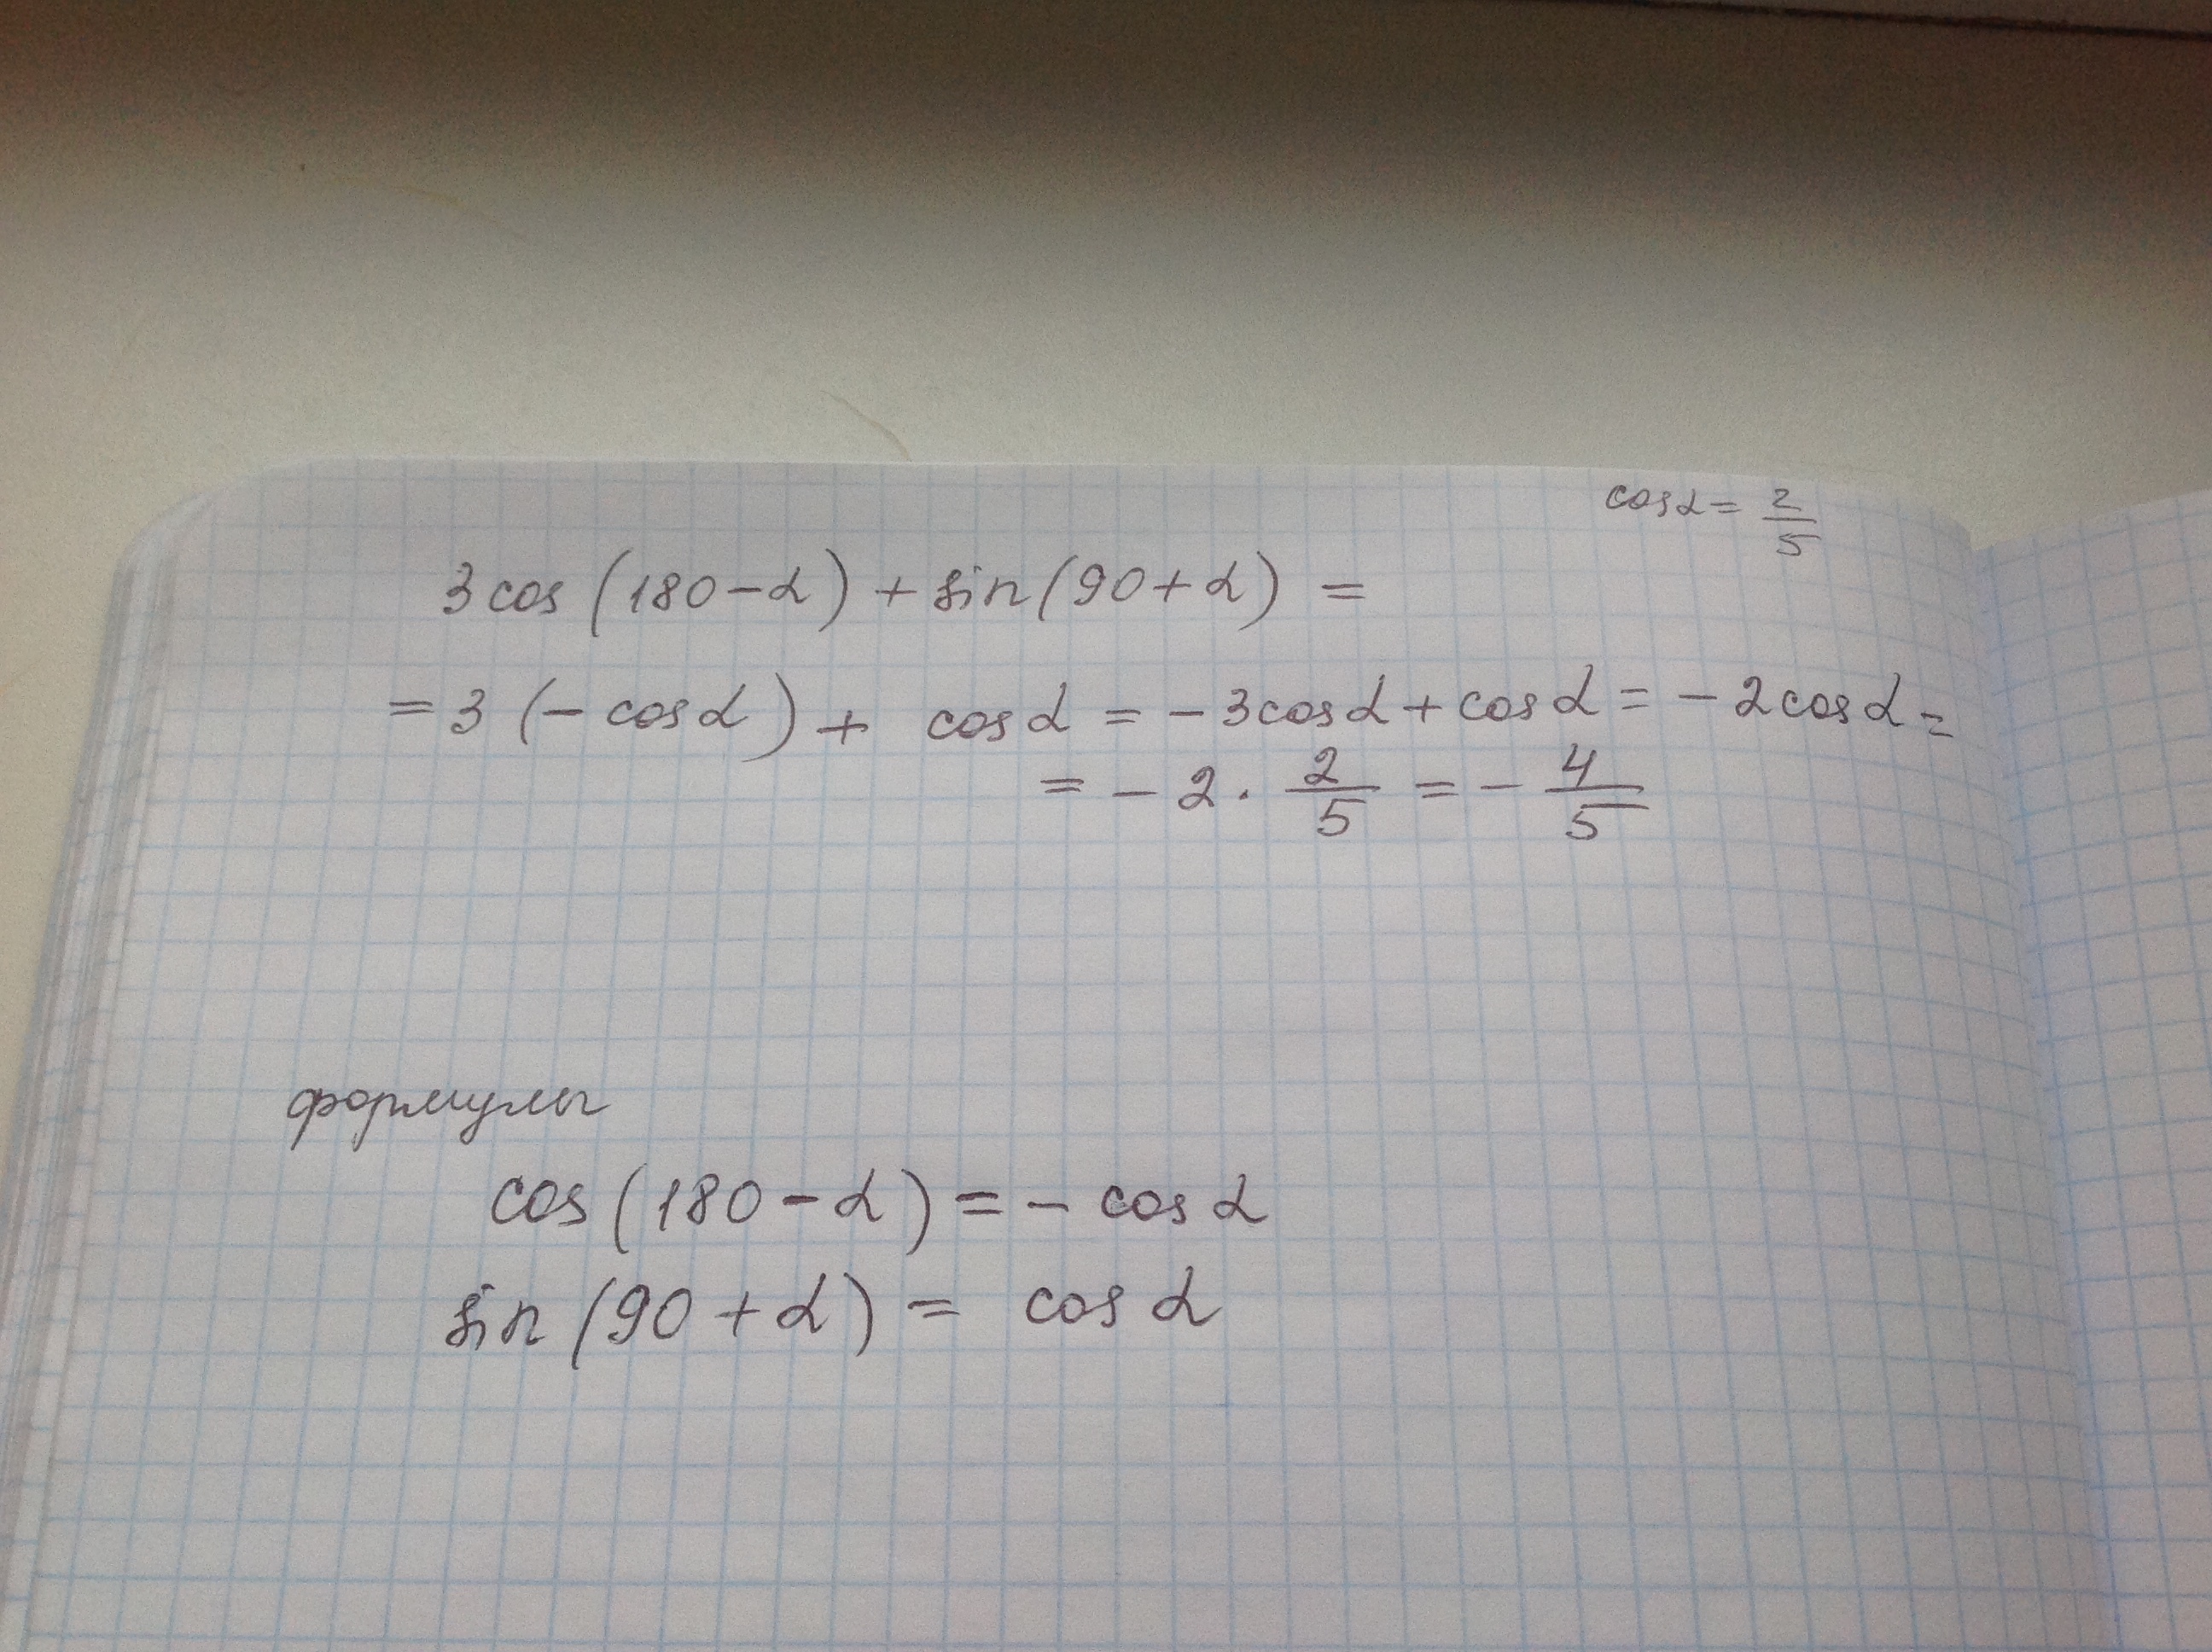 cos α = 2/5
3 cos (180 - α) + sin (90 + α) =
= 3 (- cos α) + cos α = - 3 cos α + cos α = - 2 cos α =
= - 2 · 2/5 = - 4/5
формулы
cos (180 - α) = - cos α
sin (90 + α) = cos α